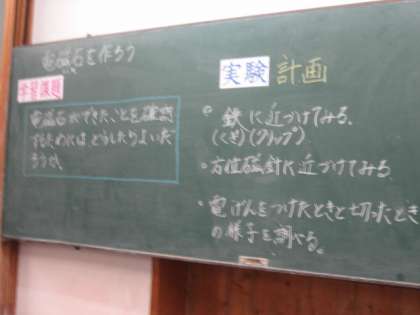 電磁石を作ろう
学習課題
電磁石ができたことを確認
するためにはどうしたらよいだ
ろうか。
実験計画
・鉄に近づけてみる。
(くぎ)(クリップ)
・方位磁針に近づけてみる
・電げんをつけたときと切ったとき
の様子を調べる。